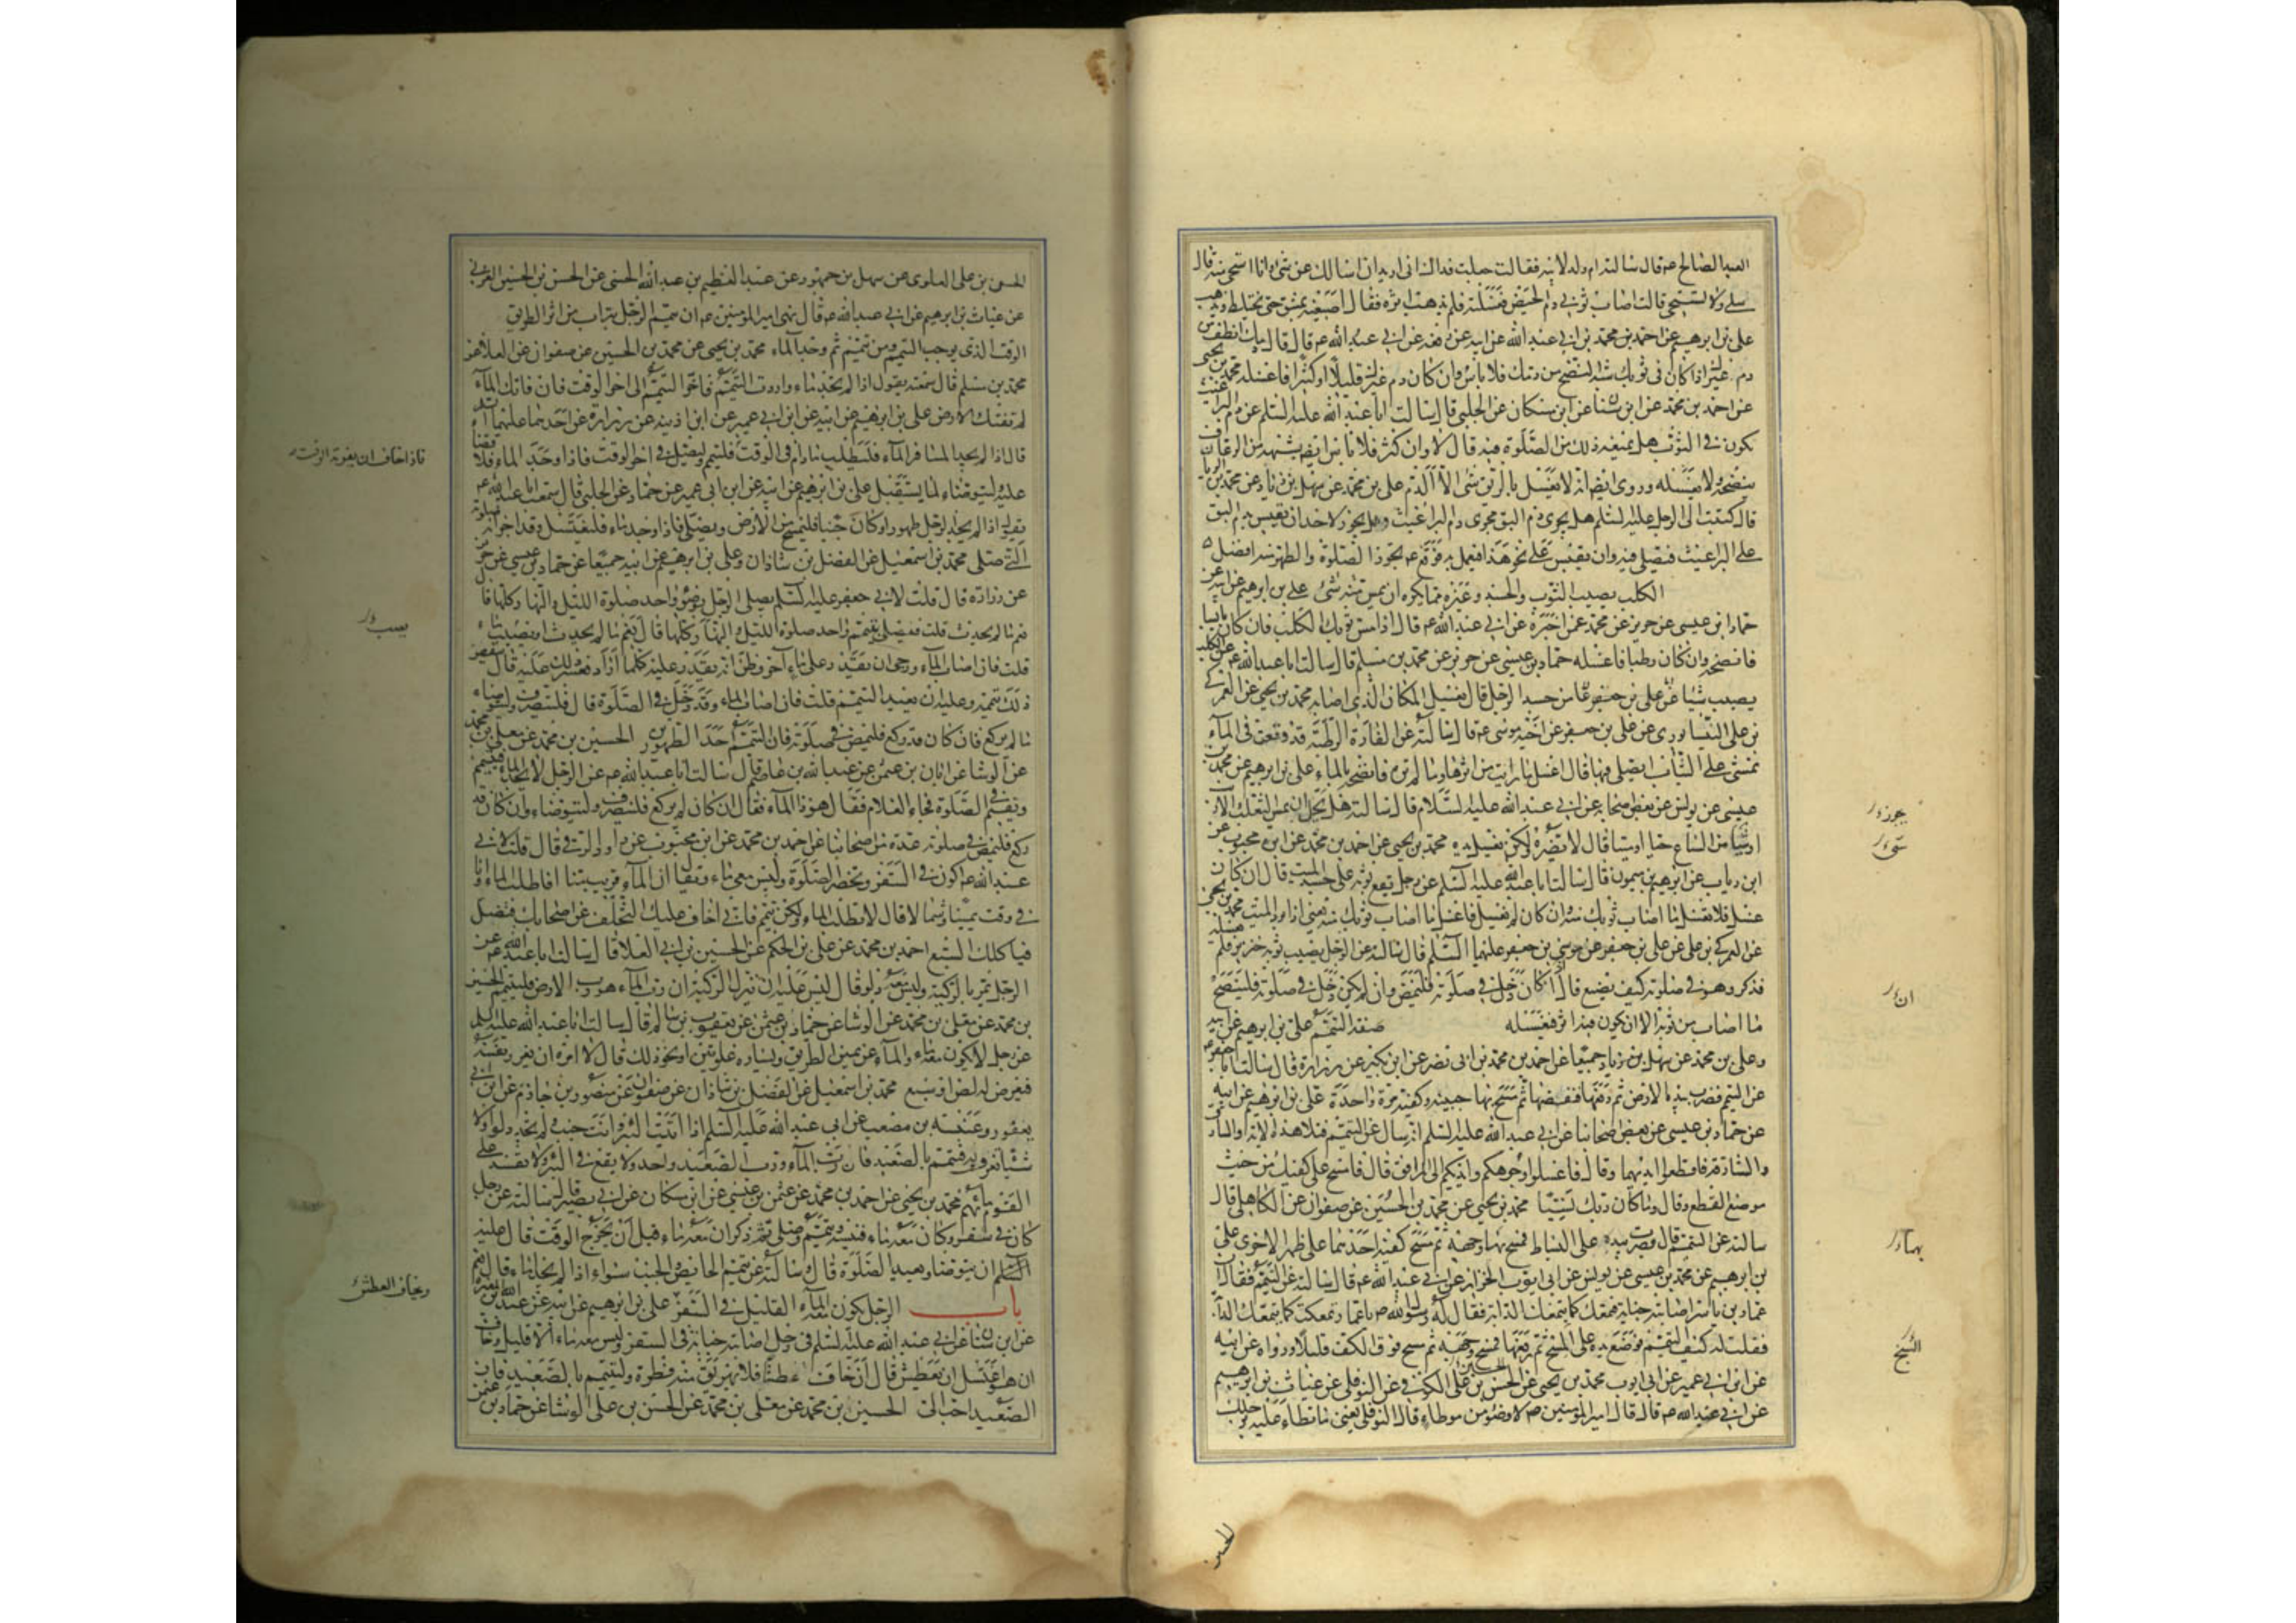 العبد الصالح عم قال سالته ام ولد لابيه فقالت جعلت فداك انى اريد ان اسالك عن شئ وانا استحى منه قال
سلى ولا تستحيى قالت اصاب ثوبى دم الحيض فغسلته فلم يذهب اثره فقال اصبغيه بمشق حتى يختلط ويذهب
على بن ابرهيم عن احمد بن محمد بن ابى عبد الله عن ابيه عن رفعه عن ابى عبد الله عم قال قال دمك انظف من
دم غيرك اذا كان فى ثوبك شبه النضح من دمك فلا باس وان كان دم غيرك قليلا او كثيرا فاغسله محمد بن يحيى
عن احمد بن محمد عن ابن سنان عن ابن مسكان عن الحلبى قال سالت ابا عبد الله عليه السلم عن دم البراغيث
يكون فى الثوب هل يمنعه ذلك من الصلوة فيه قال لا وان كثر فلا باس ايضا بشبهه من الرعاف
ينضحه ولا يغسله وروى ايضا انه لا يغسل بالريق شئ الا الدم على بن محمد عن سهل بن زياد عن محمد بن الريان
قال كتبت الى الرجل عليه السلم هل يجرى دم البق مجرى دم البراغيث وهل يجوز لاحد ان يقيس بدم البق
على البراغيث فيصلى فيه وان يقيس على نحو هذا فيعمل به فوقع عم يجوز الصلوة والطهر منه افضل
الكلب يصيب الثوب والجسد وغيره مما يكره ان يمس منه شئ على بن ابرهيم عن ابيه عن
حماد ابن عيسى عن حريز عن محمد عمن اخبره عن ابى عبد الله عم قال اذا مس ثوبك الكلب فان كان يابسا
فانضحه وان كان رطبا فاغسله حماد بن عيسى عن حريز عن محمد بن مسلم قال سالت ابا عبد الله عم عن الكلب
يصيب شيئا من جسد الرجل قال يغسل المكان الذى اصابه محمد بن يحيى عن العمركى
بن على النيسابورى عن على بن جعفر عن اخيه موسى عم قال سالته عن الفارة الرطبة قد وقعت فى الماء
تمشى على الثياب ايصلى فيها قال اغسل ما رايت من اثرها وما لم تره فانضحه بالماء على بن ابرهيم عن محمد بن
عيسى عن يونس عن بعض اصحابه عن ابى عبد الله عليه السلام قال سالته هل يحل ان يمس الثعلب الارنب
او شيئا من السباع حيا او ميتا قال لا يضره ولكن يغسل يده محمد بن يحيى عن احمد بن محمد عن ابن محبوب عن
ابن رياب عن ابرهيم بن ميمون قال سالت ابا عبد الله عليه السلم عن رجل يقع ثوبه على جسد الميت قال ان كان
غسل فلا تغسل ما اصاب ثوبك منه وان كان لم يغسل فاغسل ما اصاب ثوبك منه يعنى اذا برد الميت محمد بن يحيى
عن العمركى بن على عن على بن جعفر عن موسى بن جعفر عليهما السلم قال سالته عن الرجل يصيب ثوبه خنزير فلم يغسله
فذكر وهو فى صلوته كيف يصنع قال ان كان دخل فى صلوته فليمض وان لم يكن دخل فى صلوته فلينضح
ما اصاب من ثوبه الا ان يكون فيه اثر فيغسله صفة التيمم على بن ابرهيم عن ابيه
وعلى بن محمد عن سهل بن زياد جميعا عن احمد بن محمد بن ابى نصر عن ابن بكير عن زرارة قال سالت ابا جعفر عم
عن التيمم فضرب بيده الارض ثم رفعها فنفضها ثم مسح بها جبينه وكفيه مرة واحدة على بن ابرهيم عن ابيه
عن حماد بن عيسى عن بعض اصحابنا عن ابى عبد الله عليه السلم انه سال عن التيمم فتلا هذه الاية والسارق
والسارقة فاقطعوا ايديهما وقال فاغسلوا وجوهكم وايديكم الى المرافق قال فامسح على كفيك من حيث
موضع القطع وقال وما كان ربك نسيا محمد بن يحيى عن محمد بن الحسين عن صفوان عن الكاهلى قال
سالته عن التيمم قال فضرب بيده على البساط فمسح بها وجهه ثم مسح كفيه احديهما على ظهر الاخرى على
بن ابرهيم عن محمد بن عيسى عن يونس عن ابى ايوب الخزاز عن ابى عبد الله عم قال سالته عن التيمم فقال ان
عمار بن ياسر اصابته جنابة فتمعك كما يتمعك الدابة فقال له رسول الله ص يا عمار تمعكت كما يتمعك الدابة
فقلت له كيف التيمم فوضع يده على المسح ثم رفعها فمسح وجهه ثم مسح فوق الكف قليلا ورواه عن ابيه
عن ابن ابى عمير عن ابى ايوب محمد بن يحيى عن الحسن بن على الكوفى عن النوفلى عن غياث بن ابرهيم
عن ابى عبد الله عم قال قال امير المؤمنين ص لا وضوء من موطاء قال النوفلى يعنى ما تطاء عليه برجلك
يجوز
شئ
ان
بها
المسح
الحسن
الحسن بن على العلوى عن سهل بن جمهور عن عبد العظيم بن عبد الله الحسنى عن الحسن بن الحسين العرنى
عن غياث بن ابرهيم عن ابى عبد الله عم قال نهى امير المؤمنين عم ان يتيمم الرجل بتراب من اثر الطريق
الوقت الذى يوجب التيمم ومن تيمم ثم وجد الماء محمد بن يحيى عن محمد بن الحسين عن صفوان عن العلا عن
محمد بن مسلم قال سمعته يقول اذا لم تجد ماء واردت التيمم فاخر التيمم الى اخر الوقت فان فاتك الماء
لم تفتك الارض على بن ابرهيم عن ابيه عن ابن ابى عمير عن ابن اذينه عن زرارة عن احدهما عليهما السلم
قال اذا لم يجد المسافر الماء فليطلب ما دام فى الوقت فليتيمم وليصل فى اخر الوقت فاذا وجد الماء فلا قضاء
عليه وليتوضاء لما يستقبل على بن ابرهيم عن ابيه عن ابن ابى عمير عن حماد عن الحلبى قال سمعت ابا عبد الله عم
يقول اذا لم يجد الرجل طهورا وكان جنبا فليمسح من الارض ويصلى فاذا وجد ماء فليغتسل وقد اجزاته صلوته
التى صلى محمد بن اسمعيل عن الفضل بن شاذان وعلى بن ابرهيم عن ابيه جميعا عن حماد بن عيسى عن حريز
عن زرارة قال قلت لابى جعفر عليه السلم يصلى الرجل بوضوء واحد صلوة الليل والنهار كلها قال
نعم ما لم يحدث قلت فيصلى بتيمم واحد صلوة الليل والنهار كلها قال نعم ما لم يحدث او يصيب ماء
قلت فان اصاب الماء ورجى ان يقدر على ماء آخر وظن انه يقدر عليه كلما اراد فعسر ذلك عليه قال ينقض
ذلك تيممه وعليه ان يعيد التيمم قلت فان اصاب الماء وقد دخل فى الصلوة قال فلينصرف وليتوضاء
ما لم يركع فان كان قد ركع فليمض فى صلوته فان التيمم احد الطهورين الحسين بن محمد عن معلى بن محمد
عن الوشا عن ابان بن عثمن عن عبد الله بن عاصم قال سالت ابا عبد الله عم عن الرجل لا يجد الماء فيتيمم
ويقيم فى الصلوة فجاء الغلام فقال هو ذا الماء فقال ان كان لم يركع فلينصرف وليتوضاء وان كان قد
ركع فليمض فى صلوته عدة من اصحابنا عن احمد بن محمد عن ابن محبوب عن داود الرقى قال قلت لابى
عبد الله عم اكون فى السفر وتحضر الصلوة وليس معى ماء ويقال ان الماء قريب منا افاطلب الماء وانا
فى وقت يمينا وشمالا قال لا تطلب الماء ولكن تيمم فانى اخاف عليك التخلف عن اصحابك فتضل
فياكلك السبع احمد بن محمد عن على بن الحكم عن الحسين بن ابى العلا قال سالت ابا عبد الله عم عن
الرجل يمر بالركية وليس معه دلو قال ليس عليه ان ينزل الركية ان رب الماء هو رب الارض فليتيمم الحسين
بن محمد عن معلى بن محمد عن الوشا عن حماد بن عثمن عن يعقوب بن سالم قال سالت ابا عبد الله عليه السلم
عن رجل لا يكون معه ماء والماء عن يمين الطريق ويساره غلوتين او نحو ذلك قال لا امره ان يغرر بنفسه
فيعرض له لص او سبع محمد بن اسمعيل عن الفضل بن شاذان عن صفوان عن منصور بن حازم عن ابن ابى
يعفور وعنبسه بن مصعب عن ابى عبد الله عليه السلم اذا اتيت البئر وانت جنب فلم تجد دلوا ولا
شيئا تغرف به فتيمم بالصعيد فان رب الماء ورب الصعيد واحد ولا تقع فى البئر ولا تفسد على
القوم ماءهم محمد بن يحيى عن احمد بن محمد عن عثمن بن عيسى عن ابن مسكان عن ابى بصير قال سالته عن رجل
كان فى سفر وكان معه ماء فنسيه وتيمم وصلى ثم ذكر ان معه ماء قبل ان يخرج الوقت قال عليه
السلم ان يتوضا ويعيد الصلوة قال وسالته عن تيمم الحائض والجنب سواء اذا لم يجد ا ماء قال نعم
باب الرجل يكون معه الماء القليل فى السفر على بن ابرهيم عن ابيه عن عبد الله بن المغيرة
عن ابن سنان عن ابى عبد الله عليه السلم فى رجل اصابته جنابة فى السفر وليس معه ماء الا قليل وخاف
ان هو اغتسل ان يعطش قال ان خاف عطشا فلا يهريق منه قطرة وليتيمم بالصعيد فان
الصعيد احب الى الحسين بن محمد عن معلى بن محمد عن الحسن بن على الوشا عن حماد بن عثمن
فاذا خاف ان يفوته الوقت
يصيب
ويخاف العطش